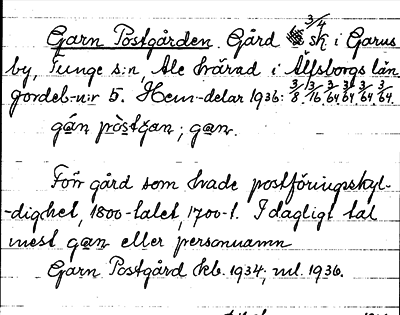 Garn Postgården. Gård 3/4 sk i Garns
by, Tunge s:n, Ale härad i Älfsborgs län
Jordeb.-n:r 5. Hem-delar 1936: 3/8. 3/16. 3/64 3/64. 3/64. 3/64.
gán pòstgan; gan.
Förr gård som hade postföringsskyl-
-dighet, 1800-talet, 1700-t. I dagligt tal
mest gan eller personnamn
Garn Postgård kb. 1934, ml. 1936.